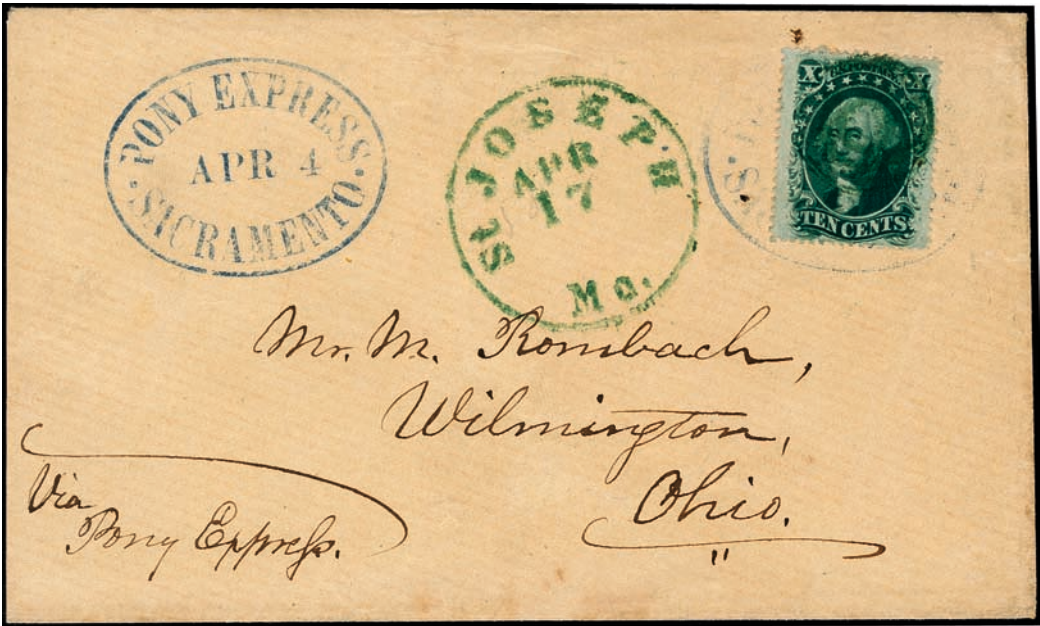 PONY EXPRESS.
APR 4
SACRAMENTO.
St JOSEPH
APR
17
Mo.
X X
TEN CENTS
Mr. M. Rombach,
Wilmington,
Ohio.
Via
Pony Express.